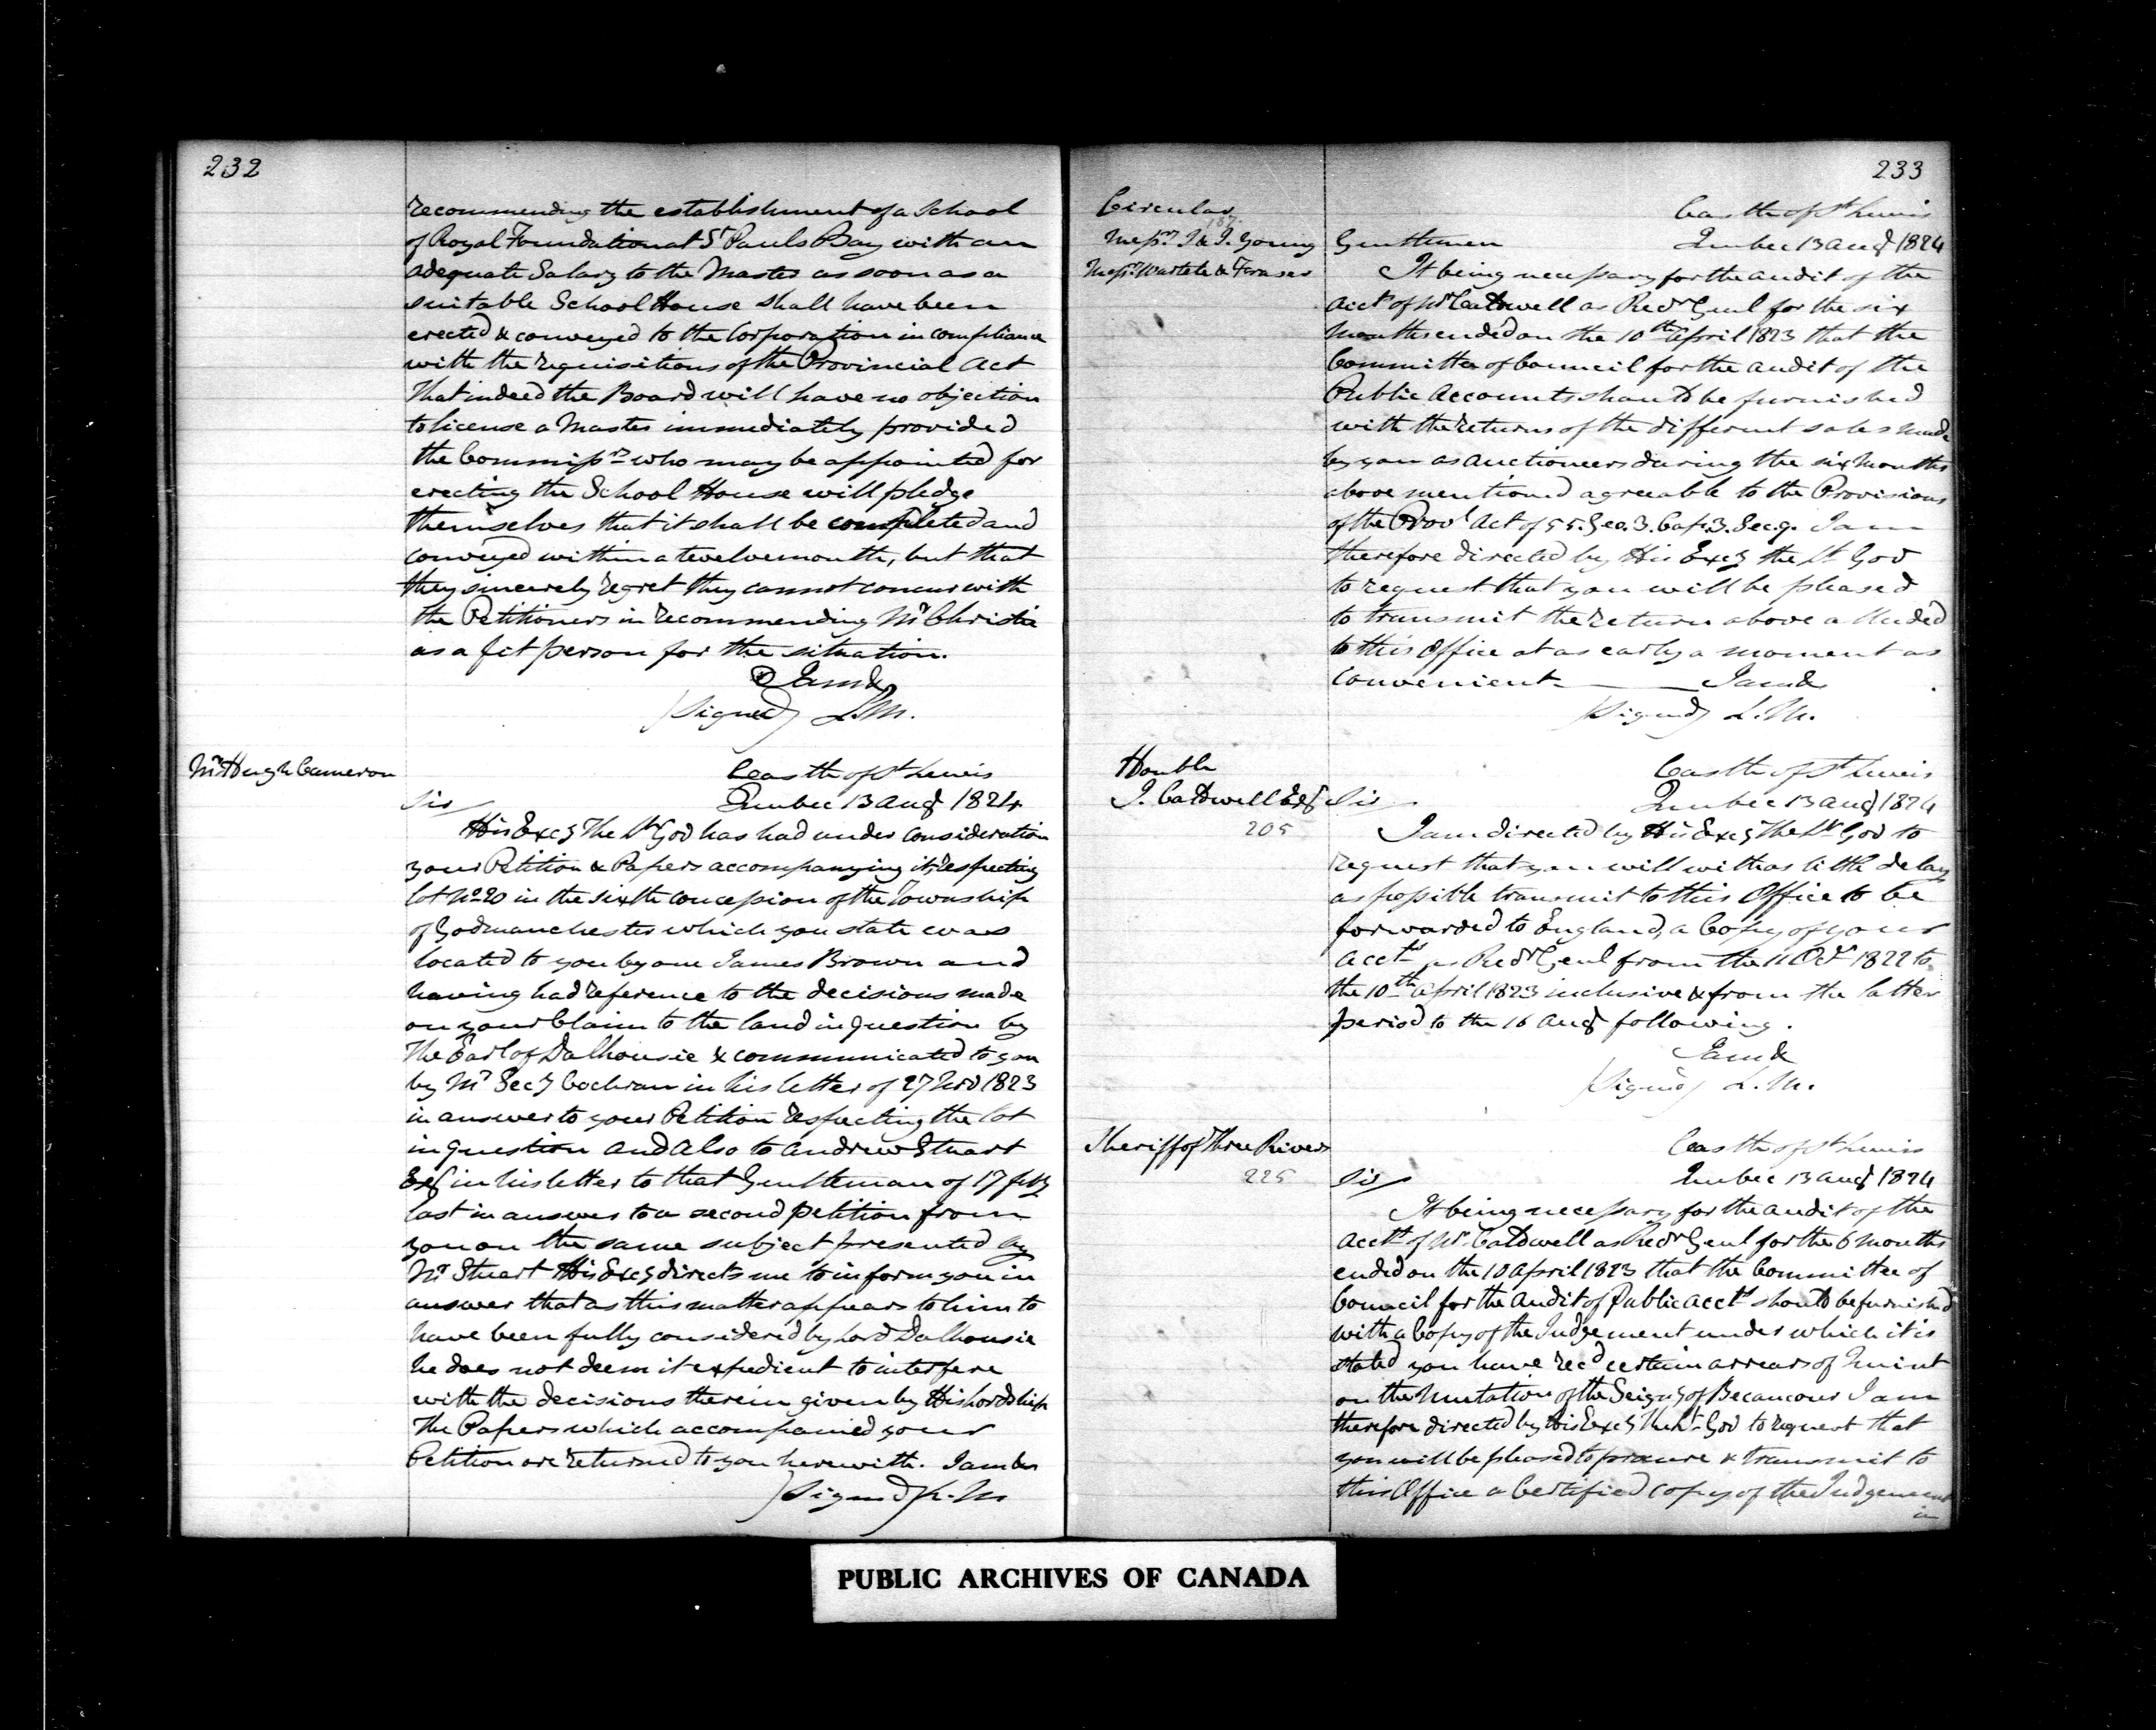 232
recommending the establishment of a School
of Royal Foundation at St Pauls Bay with an
adequate Salary to the Master as soon as a
suitable School House shall have been
erected & conveyed to the Corporation in compliance
with the requisitions of the Provincial Act
That indeed the Board will have no objection
to license a Master immediately provided
the Commissrs who may be appointed for
erecting the School House will pledge
themselves that it shall be completed and
conveyed within a twelvemonth, but that
they sincerely regret they cannot concur with
the Petitioners in recommending Mr Christie
as a fit person for the situation.
I am &
/Signed/ L. M.
Mr Hugh Cameron
Castle of St Lewis
Sir/ Quebec 13 Augt 1824
His Excy The Lt Gov has had under consideration
your Petition & Papers accompanying it, respecting
lot No 20 in the sixth concession of the Township
of Godmanchester which you state was
located to you by one James Brown and
having had reference to the decisions made
on your Claim to the land in question by
The Earl of Dalhousie & communicated to you
by Mr Secy Cochran in his letter of 27 Nov 1823
in answer to your Petition respecting the lot
in question and also to Andrew Stuart
Esq in his letter to that Gentleman of 17 feby
last in answer to a second petition from
you on the same subject presented by
Mr Stuart His Excy directs me to inform you in
answer that as this matter appears to him to
have been fully considered by Lord Dalhousie
he does not deem it expedient to interfere
with the decisions therein given by His Lordship
The Papers which accompanied your
Petition are returned to you herewith. I am &c
/Signed/ L. M
233
Circular
187.
Messrs J & J. Young
Messrs Wartele & Fraser
Castle of St Lewis
Gentlemen Quebec 13 Augt 1824
It being necessary for the audit of the
Acct of Mr Caldwell as Recr Genl for the six
Months ended on the 10th April 1823 that the
Committee of Council for the audit of the
Public Accounts should be furnished
with the returns of the different sales made
by you as Auctioneers during the six Months
above mentioned agreeable to the Provisions
of the Provl Act of 55. Geo. 3. Cap. 3. Sec. 9. I am
therefore directed by His Excy the Lt Gov
to request that you will be pleased
to transmit the return above alluded
to this Office at as early a moment as
convenient. I am &
/Signed/ L. M.
Honble
J. Caldwell Esq
205
Castle of St Lewis
Sir Quebec 13 Augt 1824
I am directed by His Excy The Lt Gov to
request that you will with as little delay
as possible transmit to this Office to be
forwarded to England, a Copy of your
Accts as Recr Genl from the 11 Octr 1822 to
the 10th April 1823 inclusive & from the latter
period to the 16 Augt following.
I am &
/Signed/ L. M.
Sheriff of Three Rivers
225
Castle of St Lewis
Sir/ Quebec 13 Augt 1824
It being necessary for the audit of the
Acct of Mr Caldwell as Recr Genl for the 6 months
ended on the 10 April 1823 that the Committee of
Council for the Audit of Public Accts should be furnished
with a Copy of the Judgement under which it is
stated you have recd certain arrears of Quint
on the Mutation of the Seigny of Becancour I am
therefore directed by His Excy The Lt Gov to request that
you will be pleased to procure & transmit to
this Office a Certified copy of the Judgement
in
PUBLIC ARCHIVES OF CANADA